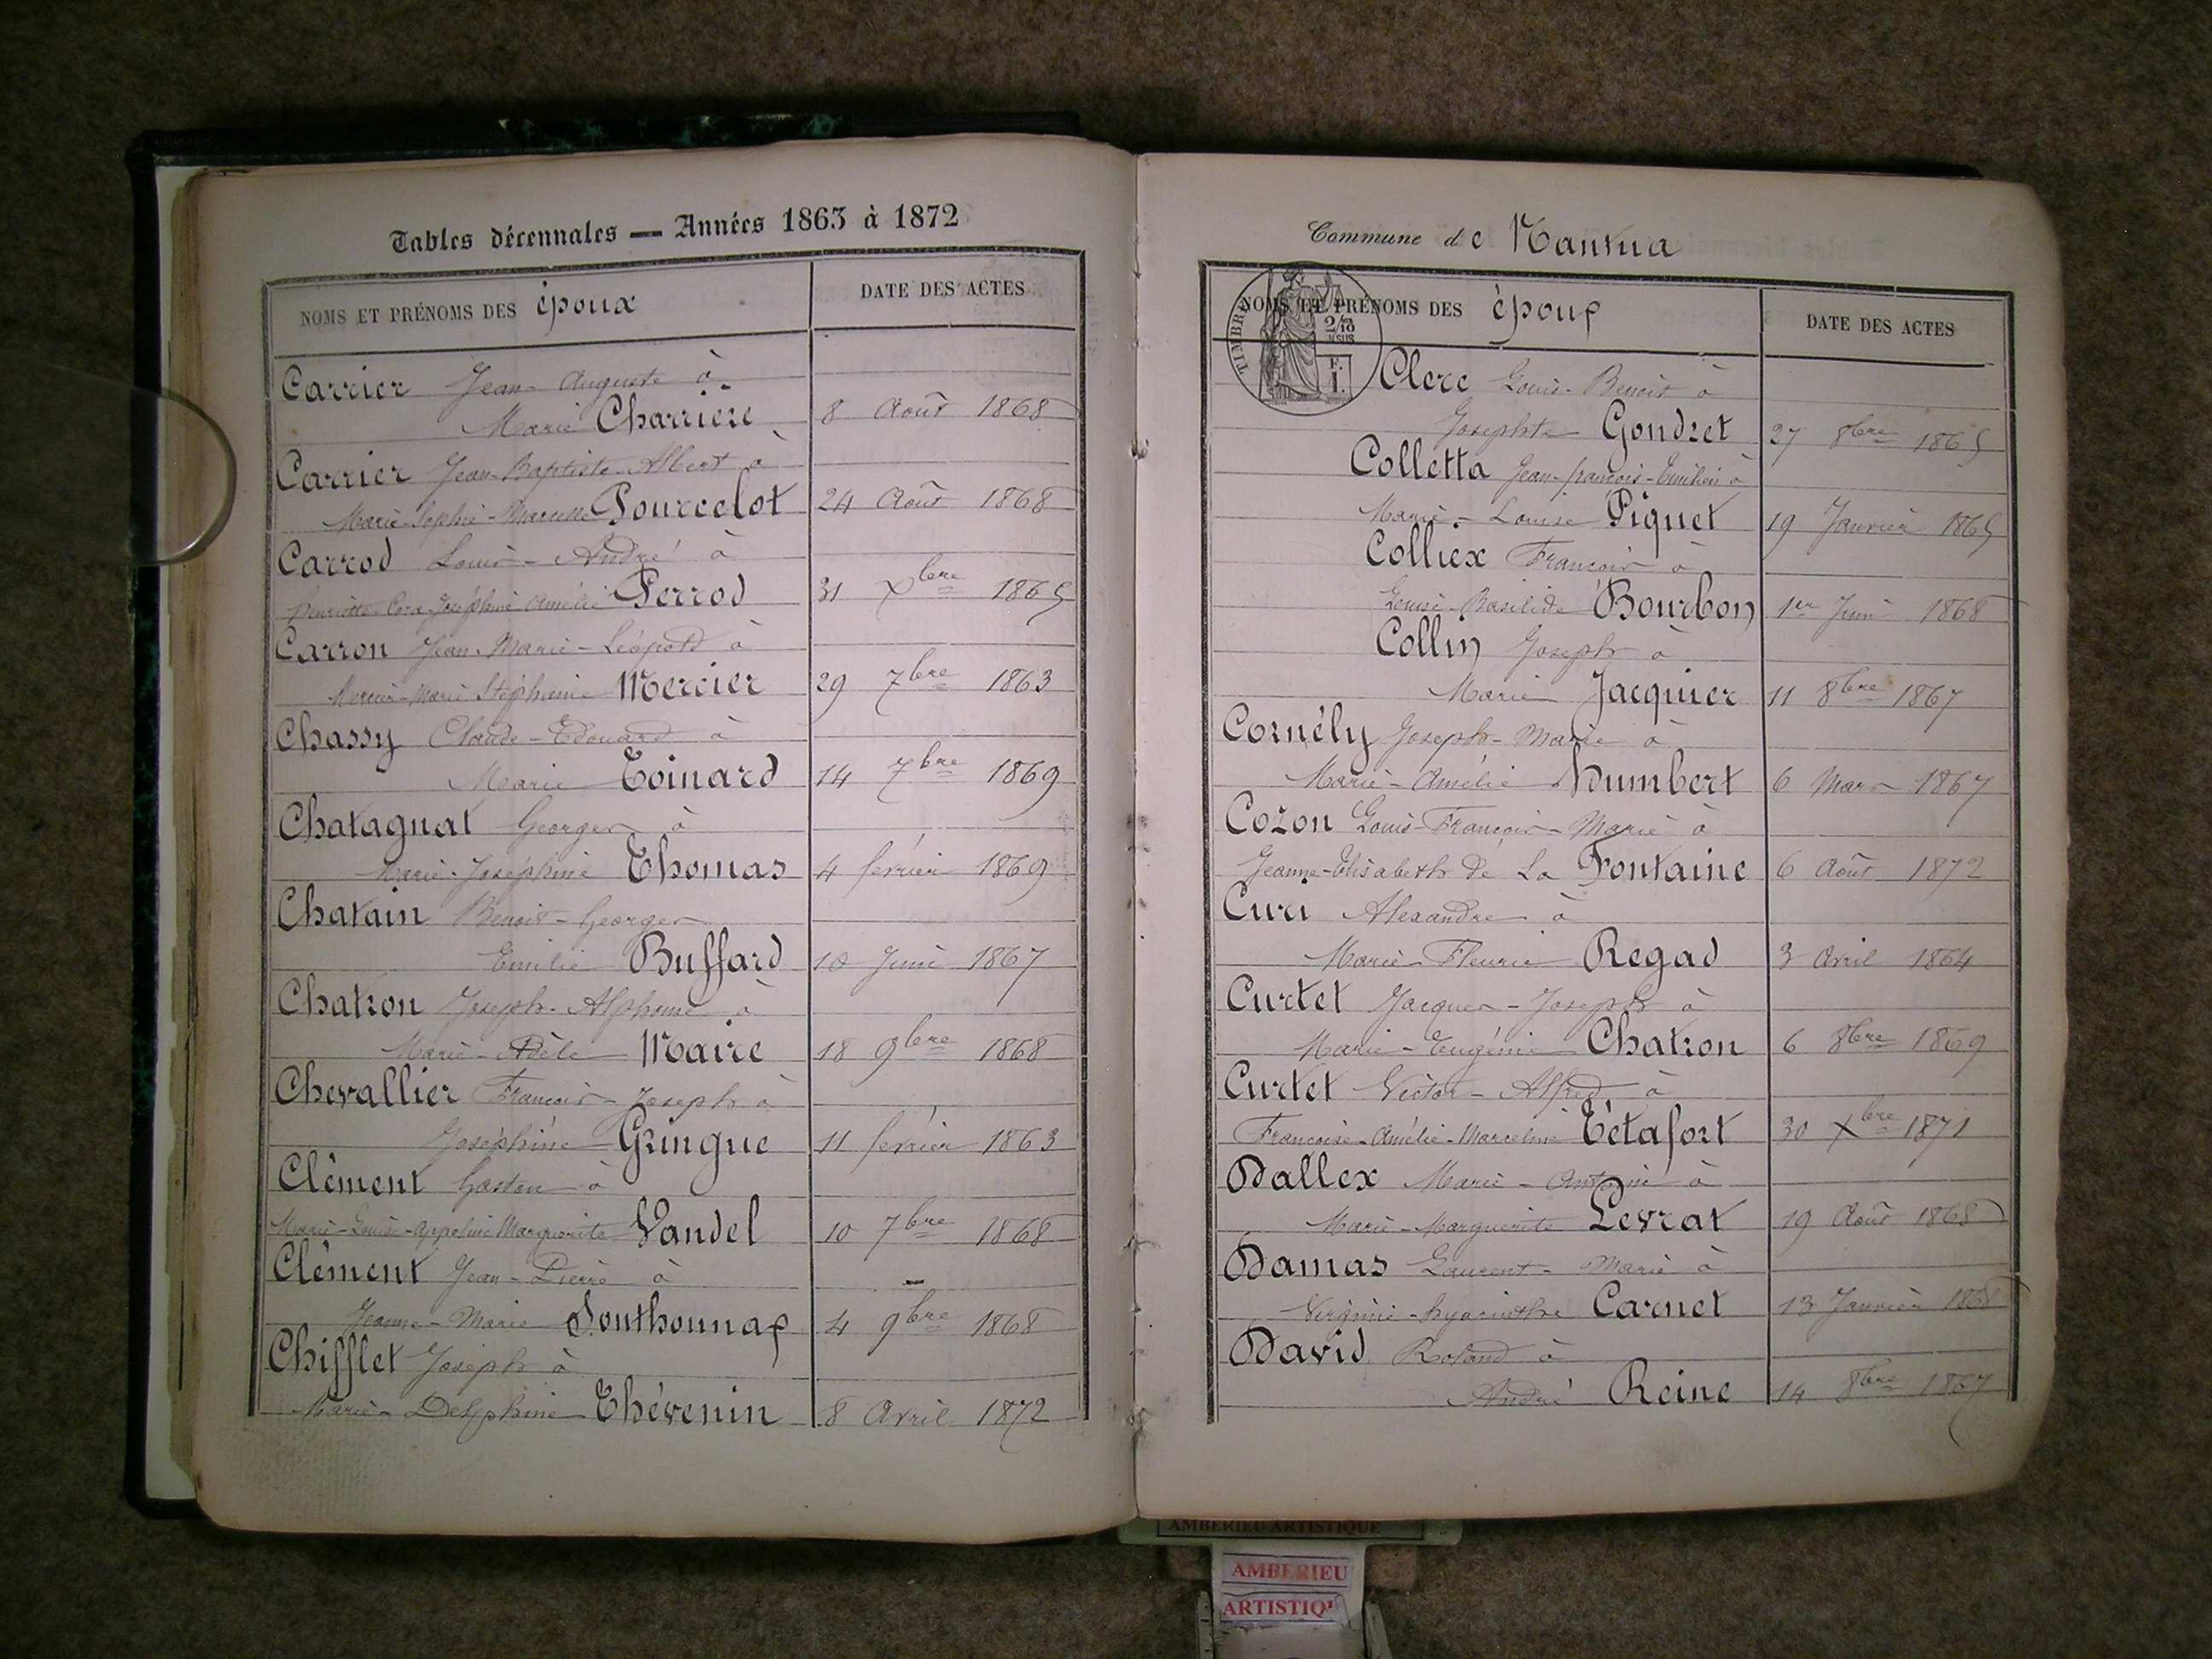 Tables décennales — Années 1863 à 1872
NOMS ET PRÉNOMS DES époux
DATE DES ACTES
Carrier Jean-Auguste à
Marie Charrière 8 Août 1868
Carrier Jean-Baptiste-Albert à
Marie-Sophie-Marcelle Pourcelot 24 Août 1868
Carrod Louis-André à
Henriette-Cora-Joséphine Amélie Perrod 31 Xbre 1865
Carron Jean-Marie-Léopold à
Marie Stéphanie Mercier 29 7bre 1863
Chassy Claude-Edouard à
Marie Toinard 14 7bre 1869
Chatagnat Georges à
Marie-Joséphine Thomas 4 février 1869
Chatain Benoit-Georges
Emilie Buffard 10 Juin 1867
Chatron Joseph-Alphonse à
Marie-Adèle Maire 18 9bre 1868
Chevallier François-Joseph à
Joséphine Gringue 11 février 1863
Clément Gaston à
Marie-Louise-Appoline Marguerite Vandel 10 7bre 1868
Clément Jean-Pierre à
Jeanne-Marie Southonnax 4 9bre 1868
Chifflet Joseph à
Marie-Delphine Thévenin 8 Avril 1872
Commune de Nantua
NOMS ET PRÉNOMS DES époux
DATE DES ACTES
TIMBRE
2/10
EN SUS
F.
1.
Clerc Louis-Benoit à
Josephte Gondret 27 8bre 1865
Colletta Jean-françois-Emilien à
Marie-Louise Piquet 19 Janvier 1865
Colliex François à
Louise-Basilide Bourbon 1er Juin 1868
Collin Joseph à
Marie Jacquier 11 8bre 1867
Cornély Joseph-Marie à
Marie-Amélie Humbert 6 Mars 1867
Cozon Louis-François-Marie à
Jeanne-Elisabeth de La Fontaine 6 Août 1872
Curi Alexandre à
Marie-Fleurie Regad 3 Avril 1864
Curtet Jacques-Joseph à
Marie-Eugénie Chatron 6 8bre 1869
Curtet Victor-Alfred à
Françoise-Amélie-Marceline Tétafort 30 Xbre 1871
Dallex Marie-Antoine à
Marie-Marguerite Levrat 19 Août 1868
Damas Laurent-Marie à
Virginie-hyacinthe Carnet 13 Janvier 1868
David Roland à
André Reine 14 8bre 1867
AMBERIEU ARTISTIQUE
AMBERIEU
ARTISTIQU